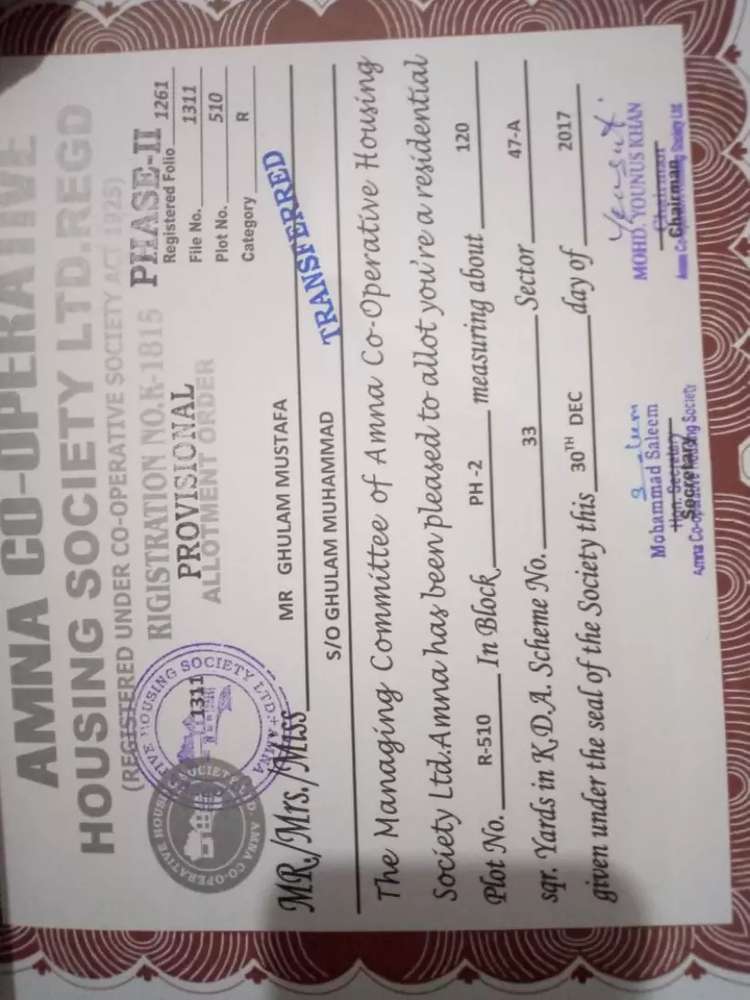 AMNA CO-OPERATIVE
HOUSING SOCIETY LTD REGD
(REGISTERED UNDER CO-OPERATIVE SOCIETY ACT 1925)
RIGISTRATION NO.K-1815 PHASE-II
PROVISIONAL
ALLOTMENT ORDER
Registered Folio 1261
File No. 1311
Plot No. 510
Category R
1311
HOUSING SOCIETY LTD. AMNA
AMNA CO-OPERATIVE HOUSING SOCIETY LTD.
MR./Mrs./Miss MR GHULAM MUSTAFA
TRANSFERRED
S/O GHULAM MUHAMMAD
The Managing Committee of Amna Co-Operative Housing
Society Ltd.Amna has been pleased to allot you're a residential
Plot No. R-510 In Block PH-2 measuring about 120
sqr. Yards in K.D.A. Scheme No. 33 Sector 47-A
given under the seal of the Society this 30TH DEC day of 2017
Mohammad Saleem
Hon. Secretary
Secretary
Amna Co-operative Housing Society
MOHD. YOUNUS KHAN
Chairman
Chairman
Amna Co-operative Housing Society Ltd.